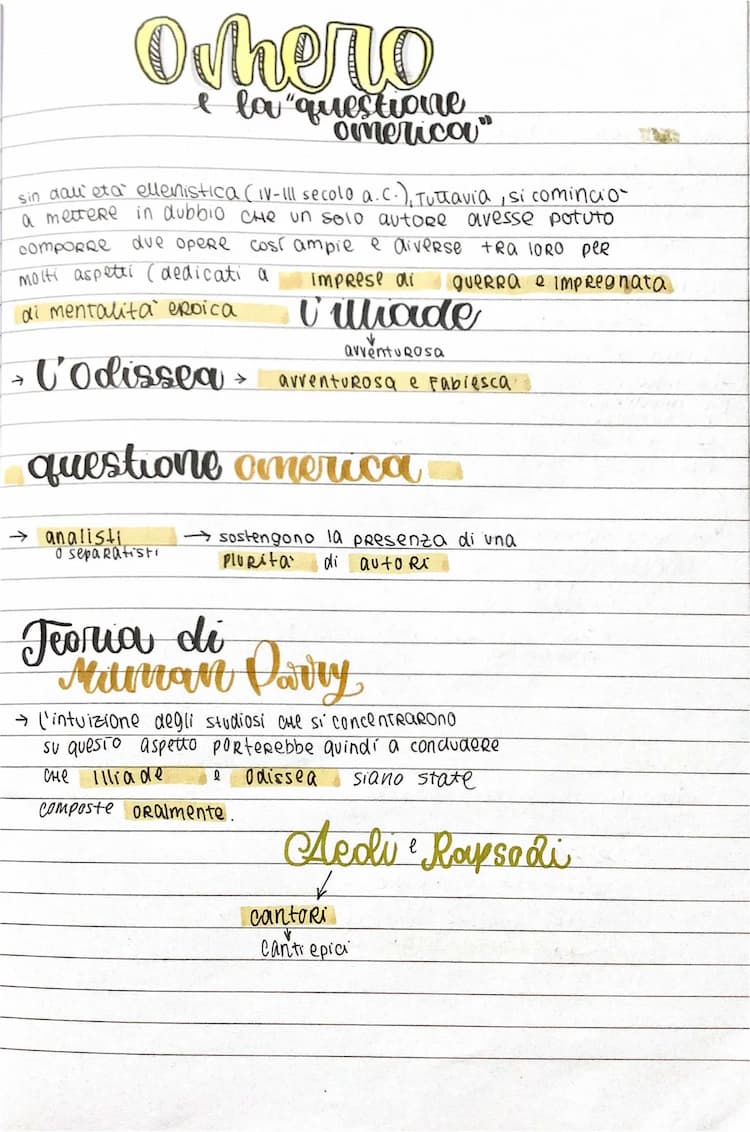 Omero
e la "questione
omerica"
sin dall'età ellenistica (IV-III secolo a.C.), Tuttavia, si cominciò
a mettere in dubbio che un solo autore avesse potuto
comporre due opere così ampie e diverse tra loro per
molti aspetti (dedicati a imprese di guerra e impregnata
di mentalità eroica L'illiade
avventurosa
→ L'Odissea → avventurosa e fabiesca
questione omerica
→ analisti → sostengono la presenza di una
o separatisti plurità di autori
Teoria di
Milman Parry
→ l'intuizione degli studiosi che si concentrarono
su questo aspetto porterebbe quindi a concludere
che Illiade e Odissea siano state
composte oralmente.
Aedi e Rapsodi
cantori
canti epici